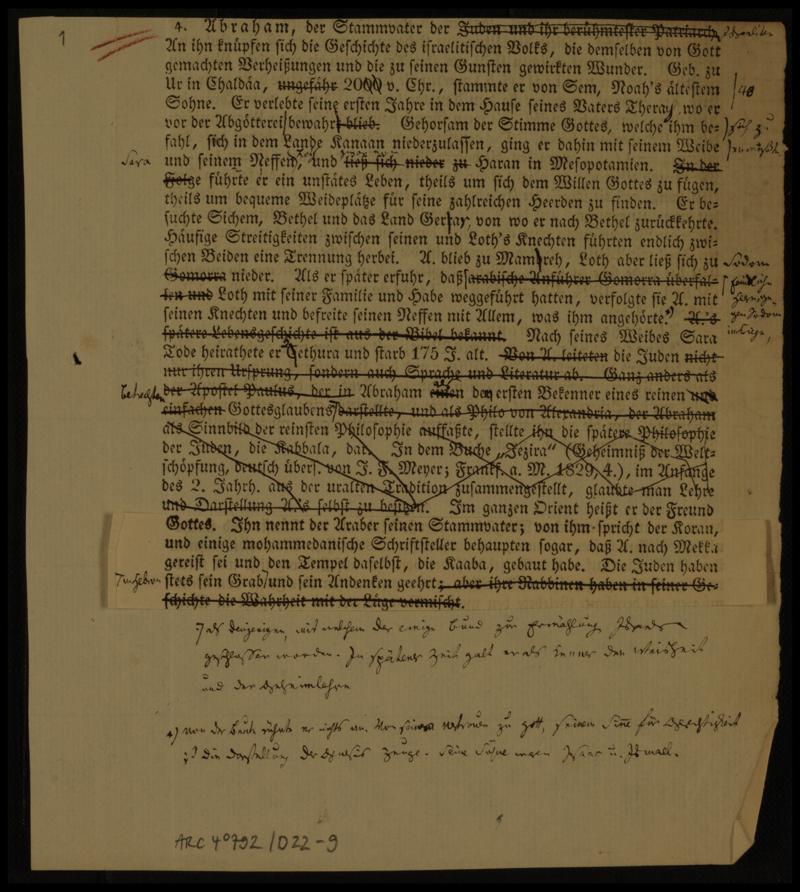 1
4. Abraham, der Stammvater der Juden und ihr berühmtester Patriarch. Israeliten
An ihn knüpfen sich die Geschichte des israelitischen Volks, die demselben von Gott
gemachten Verheißungen und die zu seinen Gunsten gewirkten Wunder. Geb. zu
Ur in Chaldäa, ungefähr 2000 v. Chr., stammte er von Sem, Noah's ältestem 48
Sohne. Er verlebte seine ersten Jahre in dem Hause seines Vaters Theray, wo er
vor der Abgötterei bewahrt blieb. Gehorsam der Stimme Gottes, welche ihm be-
fahl, sich in dem Lande Kanaan niederzulassen, ging er dahin mit seinem Weibe
Sara und seinem Neffen, und ließ sich nieder zu Haran in Mesopotamien. In der
Folge führte er ein unstätes Leben, theils um sich dem Willen Gottes zu fügen,
theils um bequeme Weideplätze für seine zahlreichen Heerden zu finden. Er be-
suchte Sichem, Bethel und das Land Gerar, von wo er nach Bethel zurückkehrte.
Häufige Streitigkeiten zwischen seinen und Loth's Knechten führten endlich zwi-
schen Beiden eine Trennung herbei. A. blieb zu Mamreh, Loth aber ließ sich zu Sodom
Gomorra nieder. Als er später erfuhr, daß arabische Anführer Gomorra überfal-
len und Loth mit seiner Familie und Habe weggeführt hatten, verfolgte sie A. mit
seinen Knechten und befreite seinen Neffen mit Allem, was ihm angehörte. A.'s
spätere Lebensgeschichte ist aus der Bibel bekannt. Nach seines Weibes Sara
Tode heirathete er Kethura und starb 175 J. alt. Von A. leiteten die Juden nicht
nur ihren Ursprung, sondern auch Sprache und Literatur ab. Ganz anders als
betrachten der Apostel Paulus, der in Abraham einen den ersten Bekenner eines reinen und
einfachen Gottesglaubens darstellte, und als Philo von Alexandria, der Abraham
als Sinnbild der reinsten Philosophie auffaßte, stellte ihn die spätere Philosophie
der Juden, die Kabbala, dar. In dem Buche „Jezira“ (Geheimniß der Welt-
schöpfung, deutsch übers. von J. F. Meyer; Frankf. a. M. 1829, 4.), im Anfange
des 2. Jahrh. aus der uralten Tradition zusammengestellt, glaubte man Lehre
und Darstellung A.'s selbst zu besitzen. Im ganzen Orient heißt er der Freund
Gottes. Ihn nennt der Araber seinen Stammvater; von ihm spricht der Koran,
und einige mohammedanische Schriftsteller behaupten sogar, daß A. nach Mekka
gereist sei und den Tempel daselbst, die Kaaba, gebaut habe. Die Juden haben
in Hebron stets sein Grab und sein Andenken geehrt; aber ihre Rabbinen haben in seiner Ge-
schichte die Wahrheit mit der Lüge vermischt.
als denjenigen, mit welchem der ewige Bund zur Erwählung Israels
geschlossen worden. In späterer Zeit galt er als Kenner der Weisheit
und der Geheimlehre
von der Beute rührte er nichts an. Von seinem Vertrauen zu Gott, seinem Sinne für Gerechtigkeit
ist die Darstellung der Genesis Zeuge. Seine Söhne waren Isaac u. Ismael.
ARC 4°792/D22-9